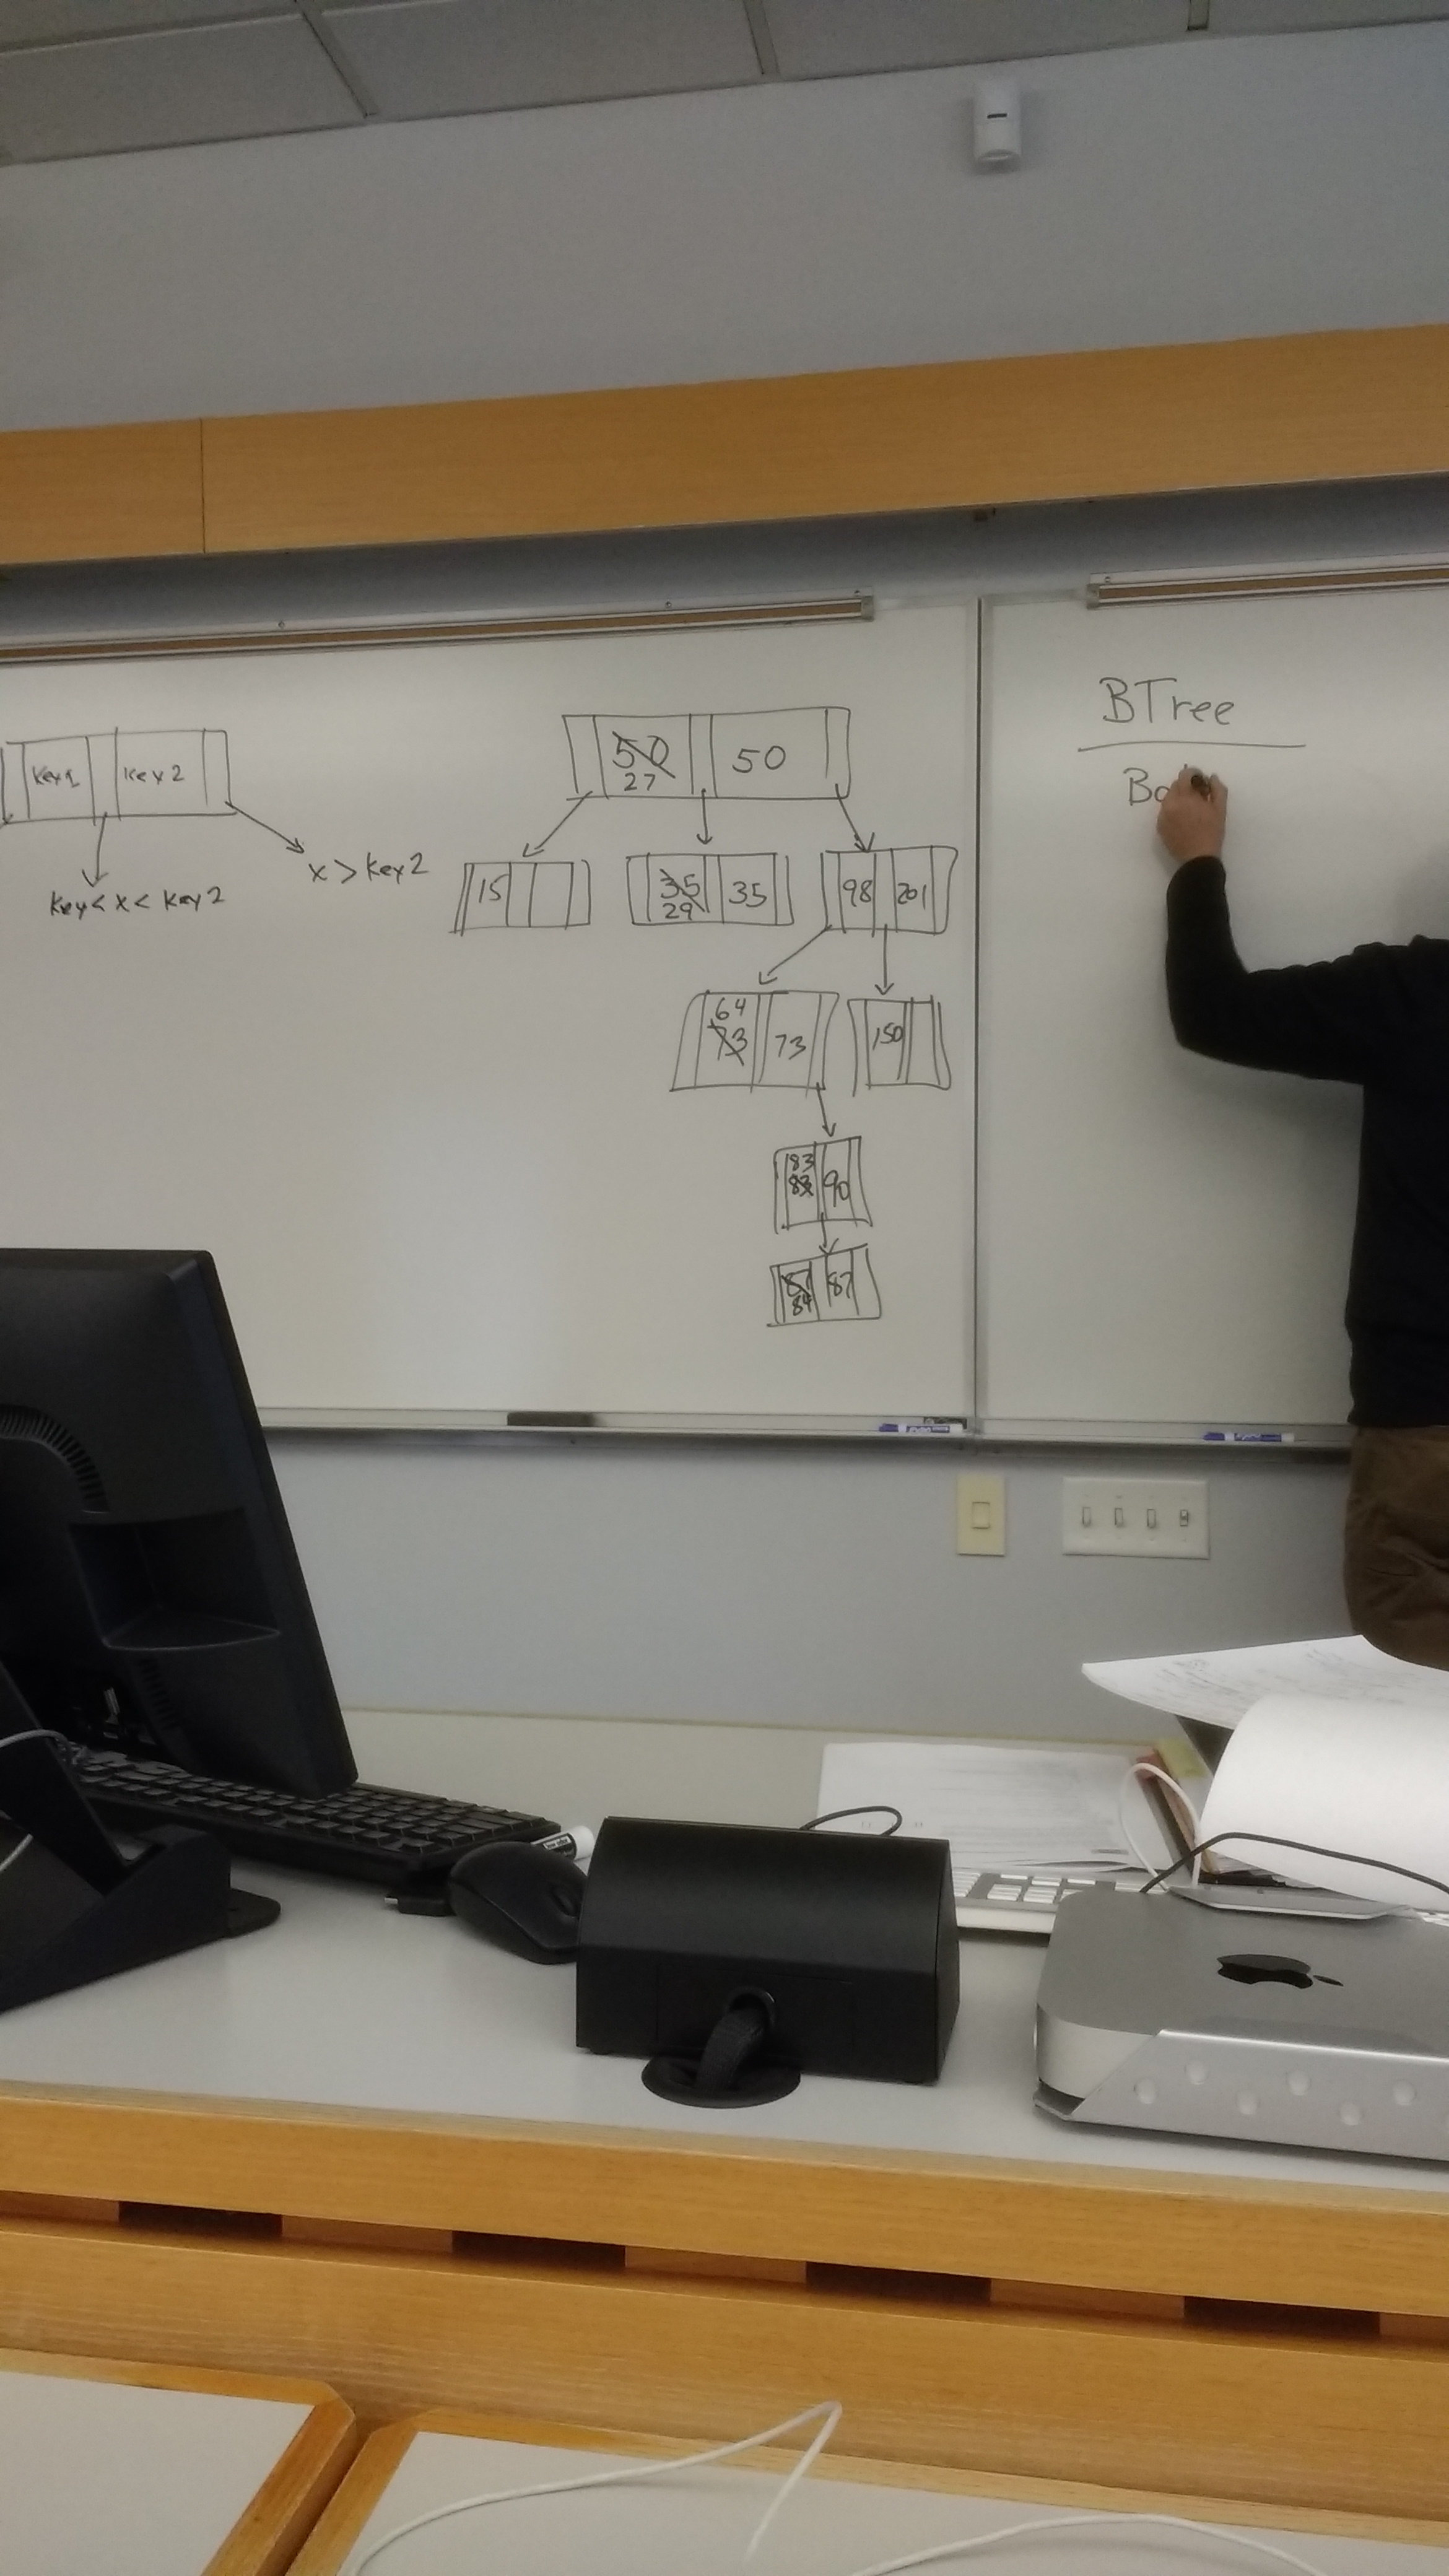 key1 key2
key < x < key2
x > key2
50 50
27
15
35 35
29
98 201
64
73 73
150
83
83 90
87 87
84
BTree